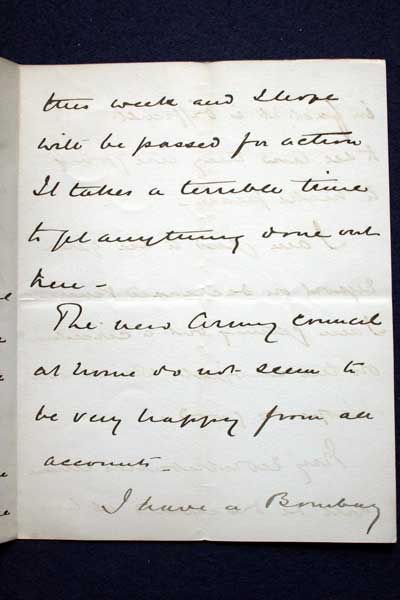 this week and I hope
will be passed for action
It takes a terrible time
to get anything done out
here –
The new Army Council
at home do not seem to
be very happy from all
accounts –
I have a Bombay